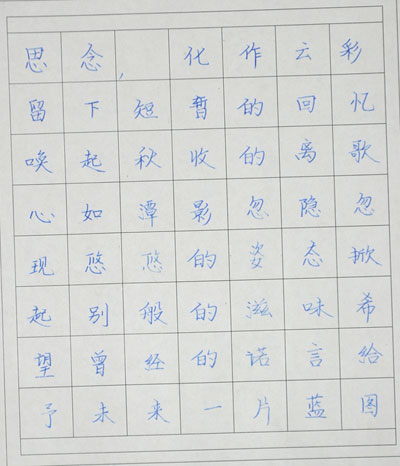 思念，化作云彩
留下短暂的回忆
唤起秋收的离歌
心如潭影忽隐忽
现悠悠的姿态掀
起别般的滋味希
望曾经的诺言给
予未来一片蓝图